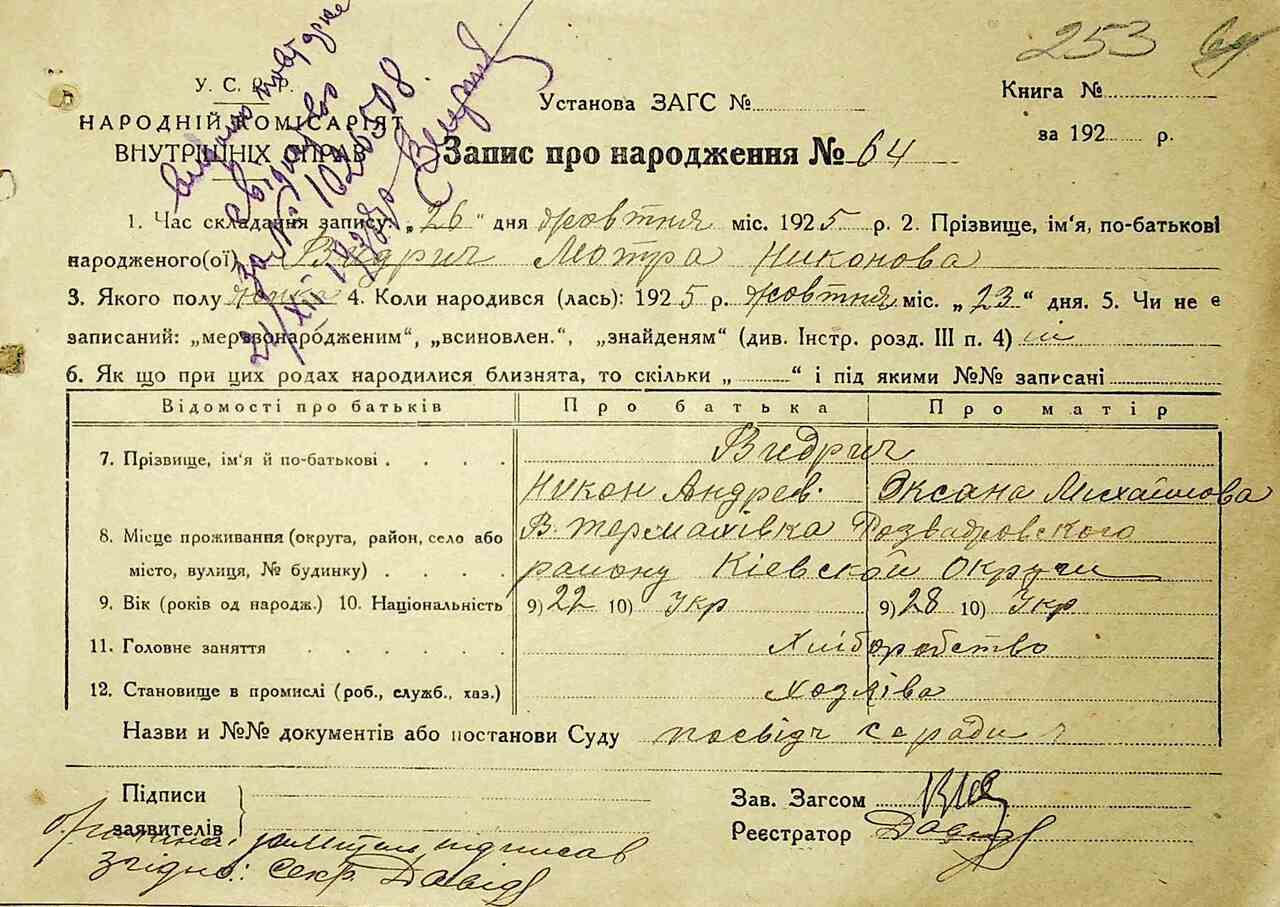 253
У. С. Р. Р.
НАРОДНІЙ КОМІСАРІЯТ
ВНУТРІШНІХ СПРАВ
Установа ЗАГС №
Книга №
за 192 р.
Запис про народження № 64
№ 1026508
21/XII
1. Час складання запису: „26" дня жовтня міс. 1925 р. 2. Прізвище, ім'я, по-батькові
народженого(ої) Видрич Мотра Никонова
3. Якого полу 4. Коли народився (лась): 1925 р. жовтня міс. „23" дня. 5. Чи не є
записаний: „мертвонародженим", „всиновлен.", „знайденям" (див. Інстр. розд. III п. 4) ні
6. Як що при цих родах народилися близнята, то скільки „ " і під якими №№ записані
Відомості про батьків Про батька Про матір
7. Прізвище, ім'я й по-батькові Видрич
Никон Андрев. Оксана Михайлова
8. Місце проживання (округа, район, село або В. термахівка Розважовского
місто, вулиця, № будинку) району Кіевской Округи
9. Вік (років од народж.) 10. Національність 9) 22 10) Укр 9) 28 10) Укр
11. Головне заняття Хліборобство
12. Становище в промислі (роб., служб., хаз.) Хозяіва
Назви и №№ документів або постанови Суду посвідч с ради
Підписи
заявителів
Зав. Загсом
Реєстратор Давид
підписав
згідно: Секр. Давид